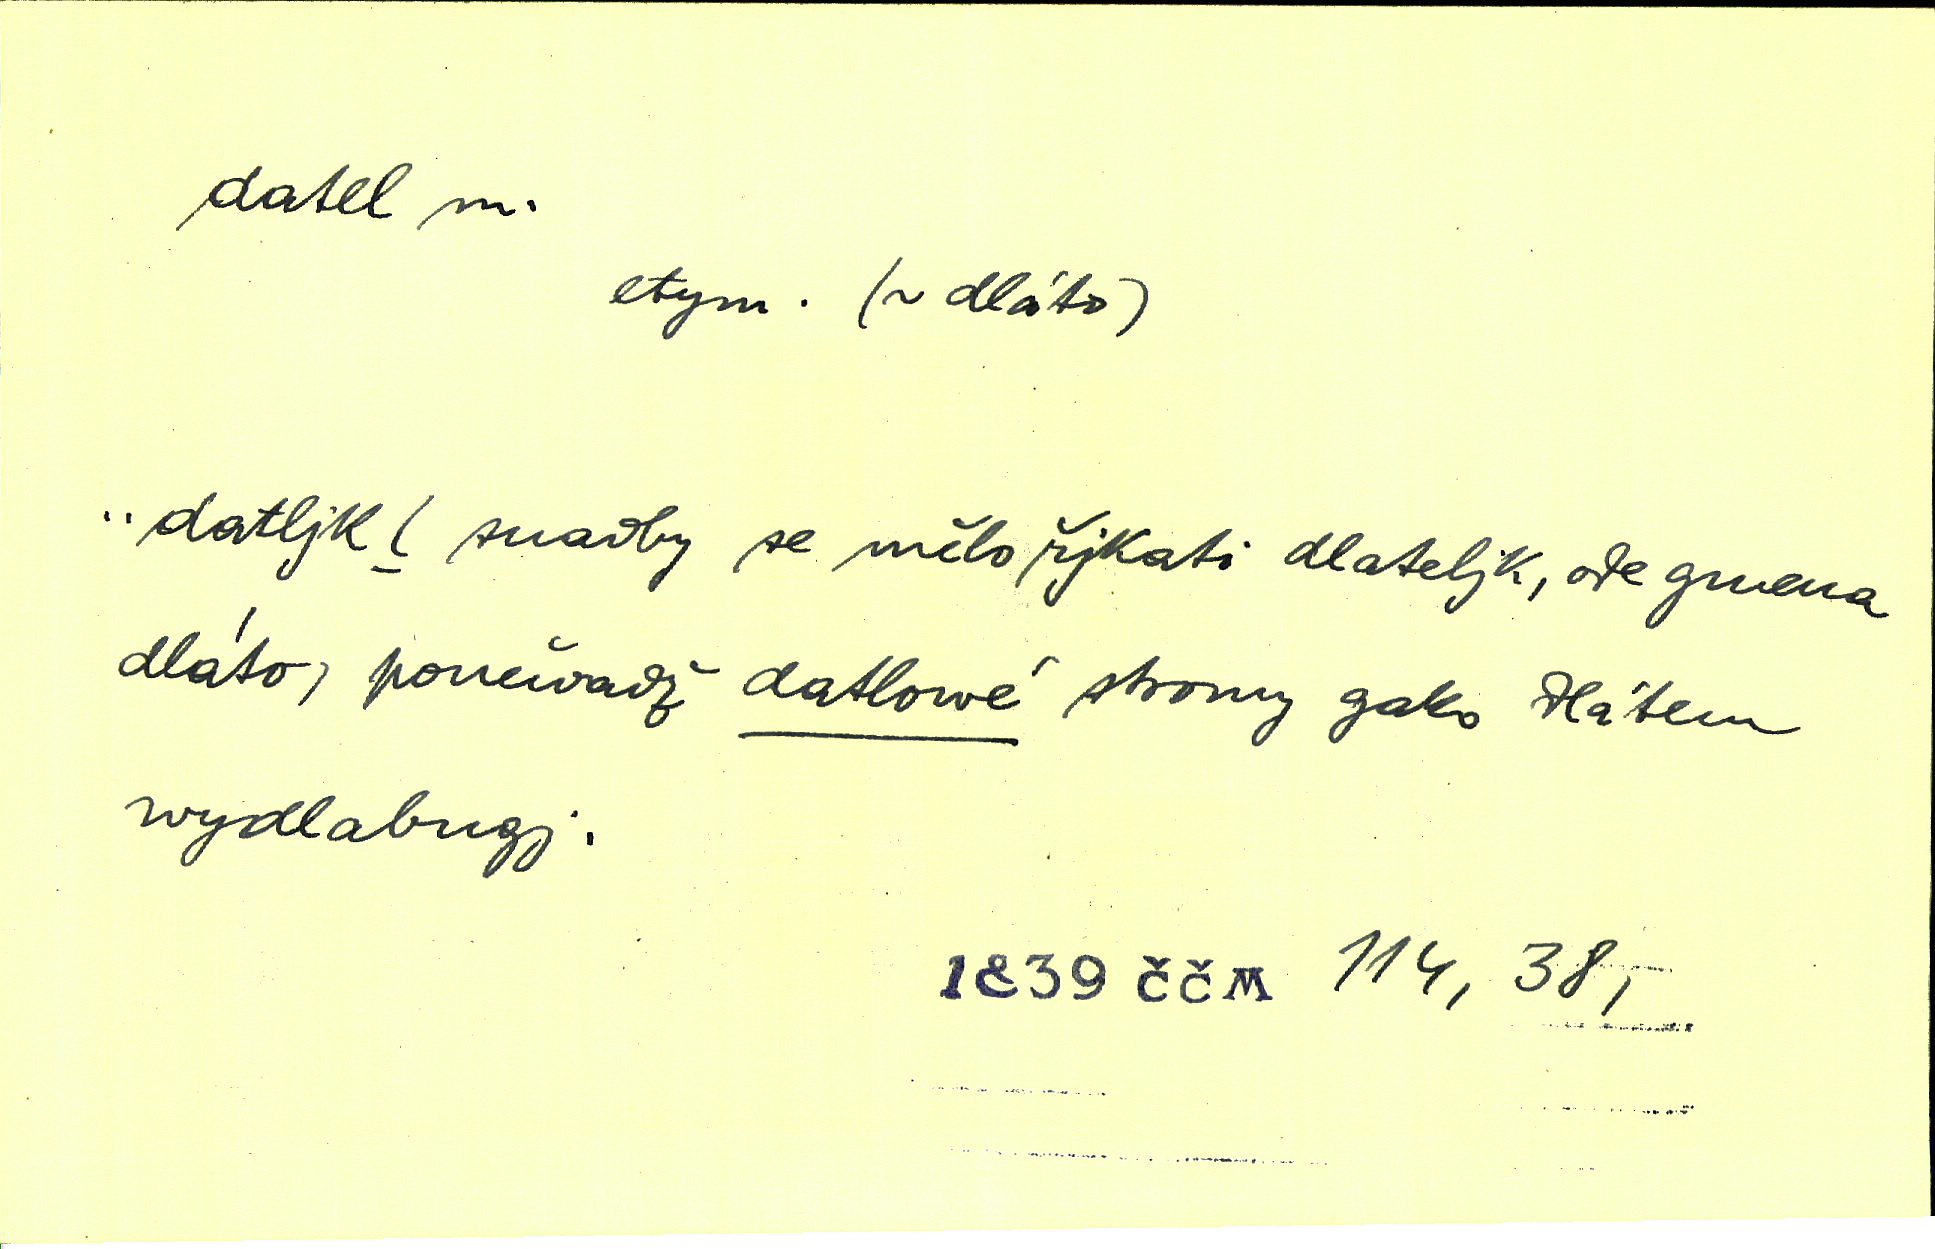 datel m.
etym. (~ dláto)
.. datljk ( snadby se mělo řjkati dlateljk, ode gmena
dláto, poněwadž datlowé stromy gako dlátem
wydlabugj.
1839 ččm 114, 38,